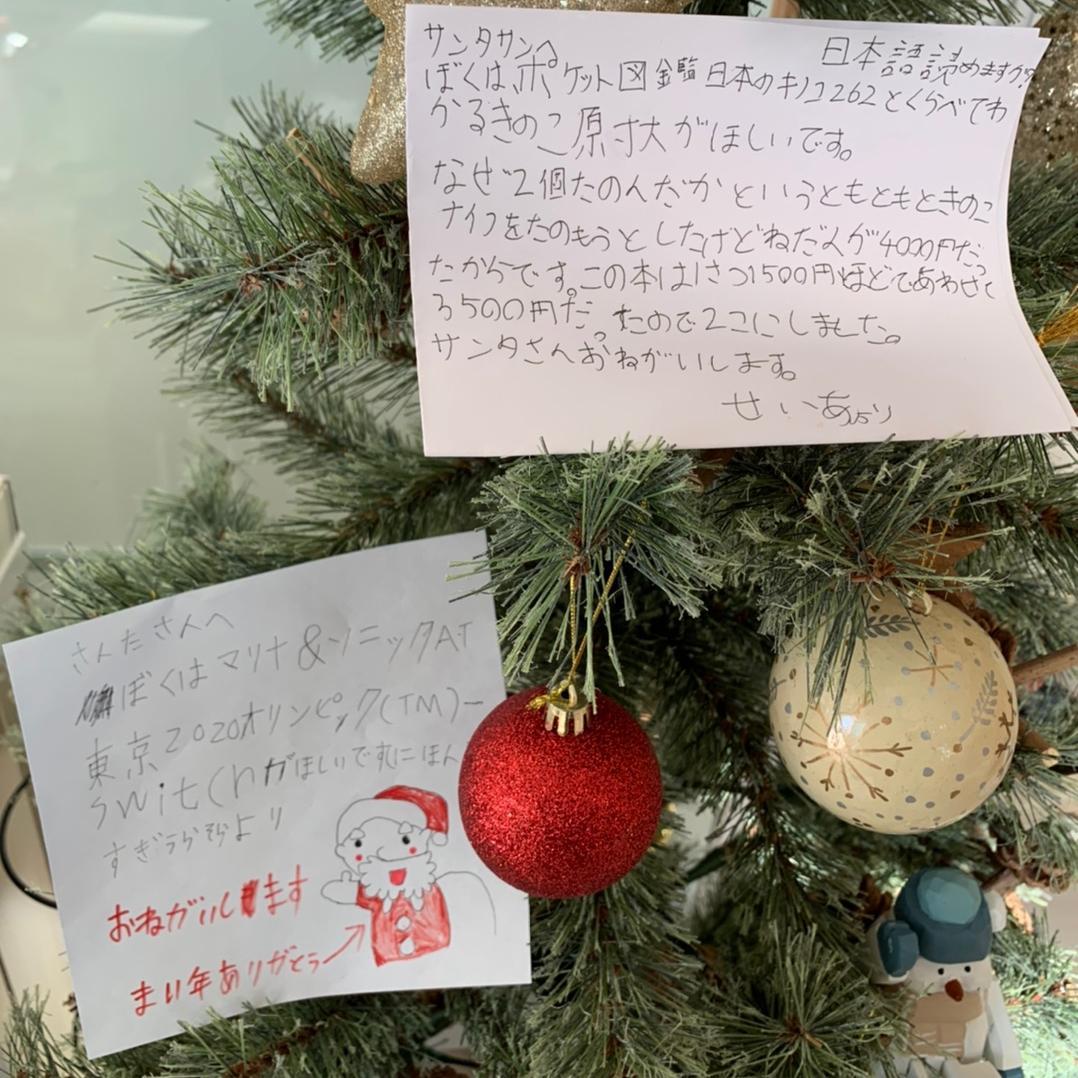 サンタサンへ 日本語読めますか?
ぼくは、ポケット図鑑日本のキノコ262とくらべてわ
かるきのこ原寸大がほしいです。
なぜ2個たのんだかというともともときのこ
ナイフをたのもうとしたけどねだんが4000円だっ
たからです。この本は1さつ1500円ほどであわせて
3500円だったので2こにしました。
サンタさんおねがいします。
せいあより
さんたさんへ
ぼくはマリオ&ソニックAT
東京2020オリンピック(TM)ー
switchがほしいです。にほん
すぎうらより
おねがいします
まい年ありがとう